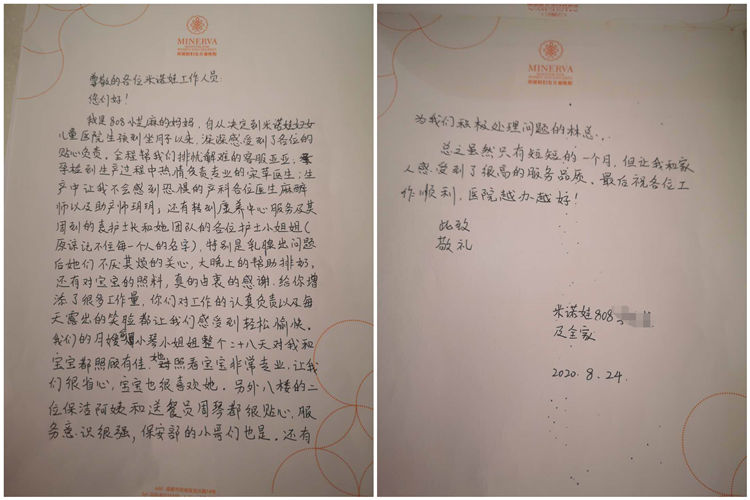 MINERVA
尊敬的各位米诺娃工作人员:
您们好!
我是808小芝麻的妈妈,自从决定到米诺娃妇女
儿童医院生孩到坐月子以来,深深感受到了各位的
贴心负责。全程帮我们排忧解难的客服亚亚,
孕检到生产过程中热情负责专业的宋苹医生;生
产中让我不会感到恐惧的产科各位医生麻醉
师以及助产师玥玥;还有转到康养中心服务及其
周到的袁护士长和她团队的各位护士小姐姐
(原谅记不住每一个人的名字),特别是乳腺出问题
后她们不厌其烦的关心,大晚上的帮助排奶,
还有对宝宝的照料,真的由衷的感谢,给你增
添了很多工作量,你们对工作的认真负责以及每
天露出的笑脸都让我们感受到轻松愉快。
我们的月嫂小琴小姐姐整个二十八天对我和
宝宝都照顾有佳,她照看宝宝非常专业,让我
们很省心,宝宝也很喜欢她。另外八楼的二
位保洁阿姨和送餐员周琴都很贴心,服
务意识很强,保安部的小哥们也是。还有
MINERVA
为我们积极处理问题的林总...
总之虽然只有短短的一个月,但让我和家
人感受到了很高的服务品质。最后祝各位工
作顺利,医院越办越好!
此致
敬礼
米诺娃808
及全家
2020.8.24.